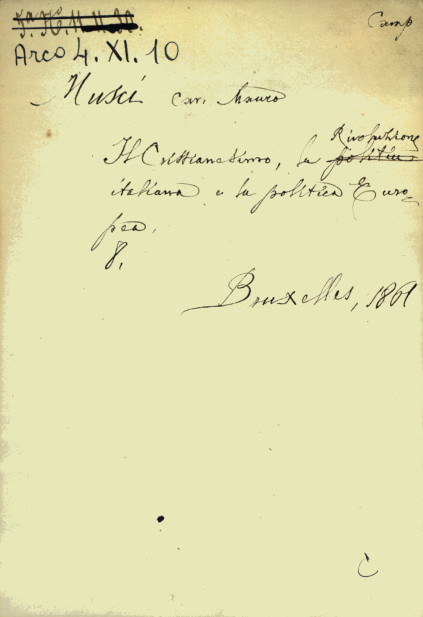 Camp
Arco 4. XI. 10
Musci Cav. Mauro
Rivoluzione
Il Cristianesimo, la politica
italiana e la politica Euro-
pea.
8.
Bruxelles, 1861
C